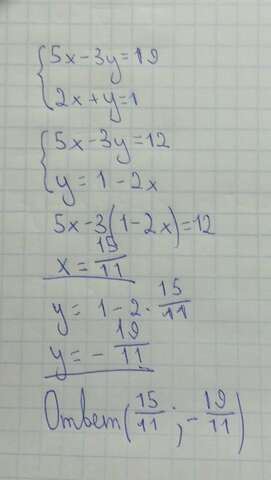 5x-3y=19
2x+y=1
5x-3y=12
y=1-2x
5x-3(1-2x)=12
x=15/11
y=1-2·15/11
y=-19/11
Ответ(15/11;-19/11)